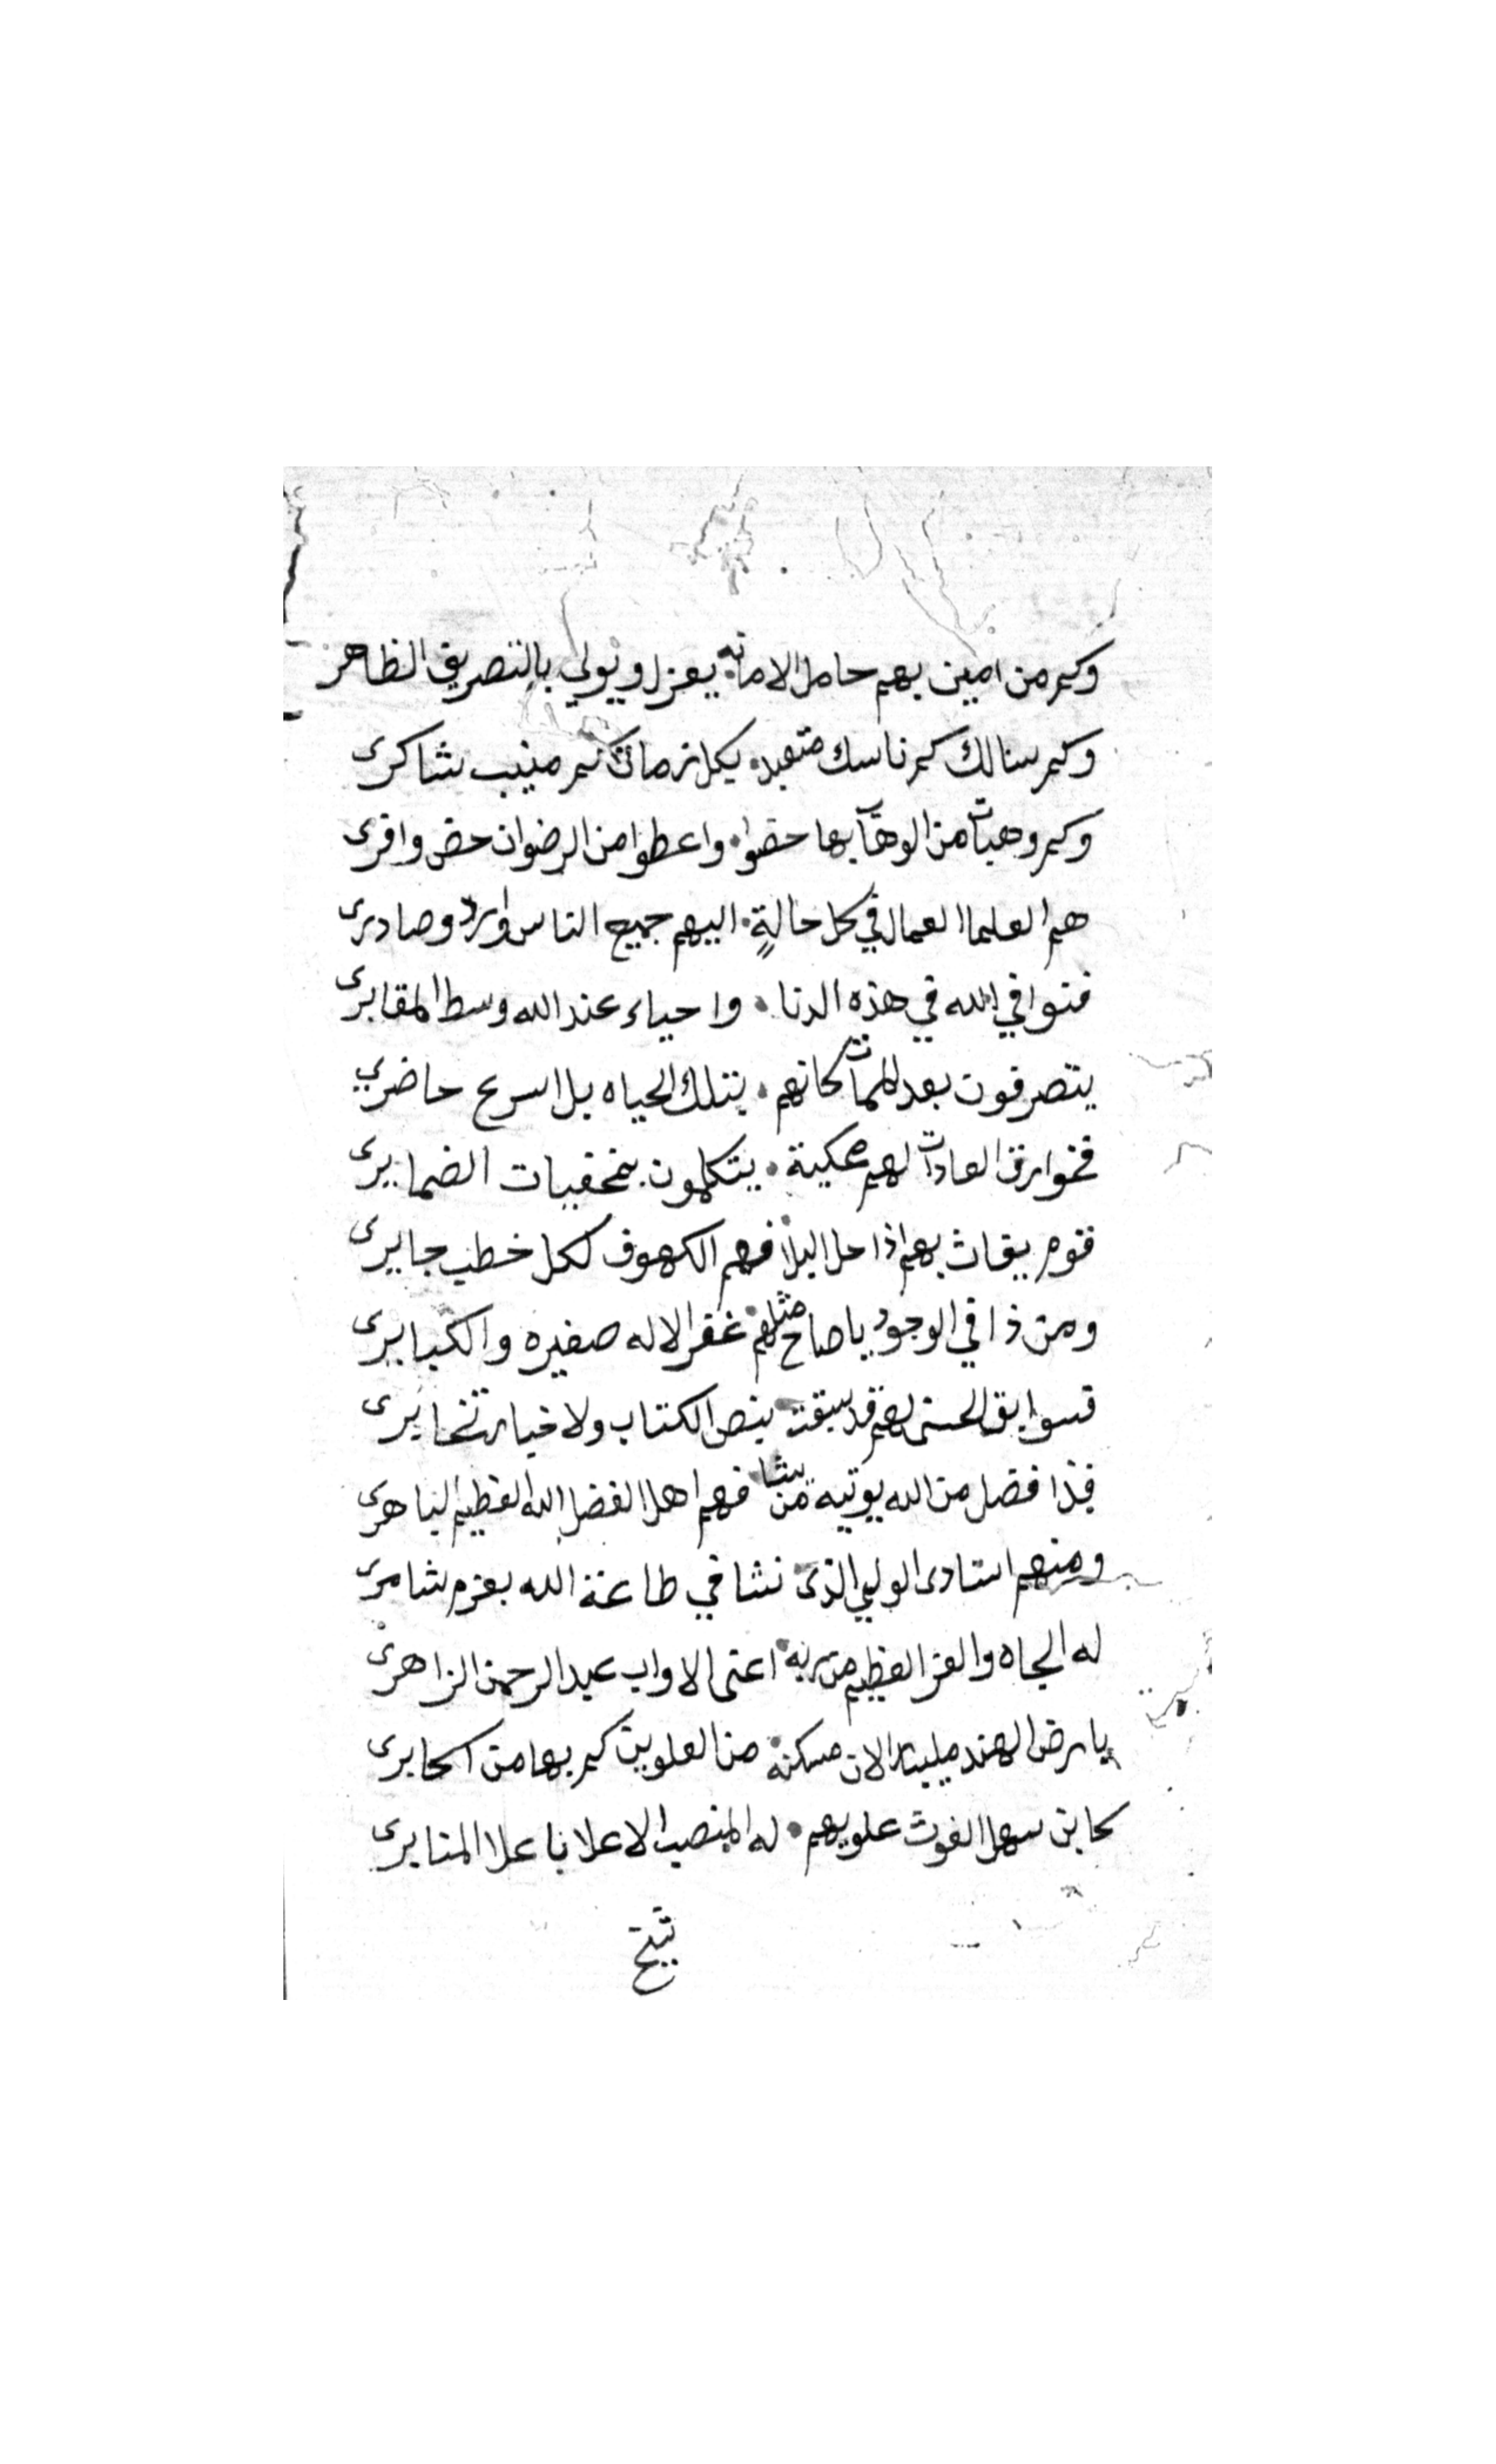 وكم من امين بهم حامل الامانه يعزل ويولي بالتصريف الظاهر
وكم سالك كم ناسك متعبد بكل زمان كم منيب شاكرى
وكم وهبات من الوهاب بها حضوا واعطوا من الرضوان حض وافرى
هم العلما العمال في كل حالةٍ اليهم جميع الناس وارد وصادرى
فنوا في الله في هذه الدنا واحياء عند الله وسط المقابرى
يتصرفون بعد الممات كانهم بتلك الحياه بل اسرع حاضري
فخوارق العادات لهم محكية يتكلمون بمخفيات الضمايرى
قوم يغاث بهم اذا حل البلا فهم الكهوف لكل خطب جايرى
ومن ذا في الوجود ياصاح مثلهم غفر الاله صغيره والكبايرى
فسوابق الحسنى لهم قد سبقت بنص الكتاب ولاخيار تخايرى
فذا فضل من الله يوتيه من يشا فهم اهل الفضل الله العظيم الباهرى
ومنهم استادى الولي الذى نشا في طاعة الله بعزم شامرى
له الجاه والعز العظيم من ربه اعنى الاواب عبد الرحمن الزاهرى
بارض الهند مليبار الان مسكنه من العلوين كم بها من اكابرى
كابن سهل الغوث علويهم له المنصب الاعلا باعلا المنابرى